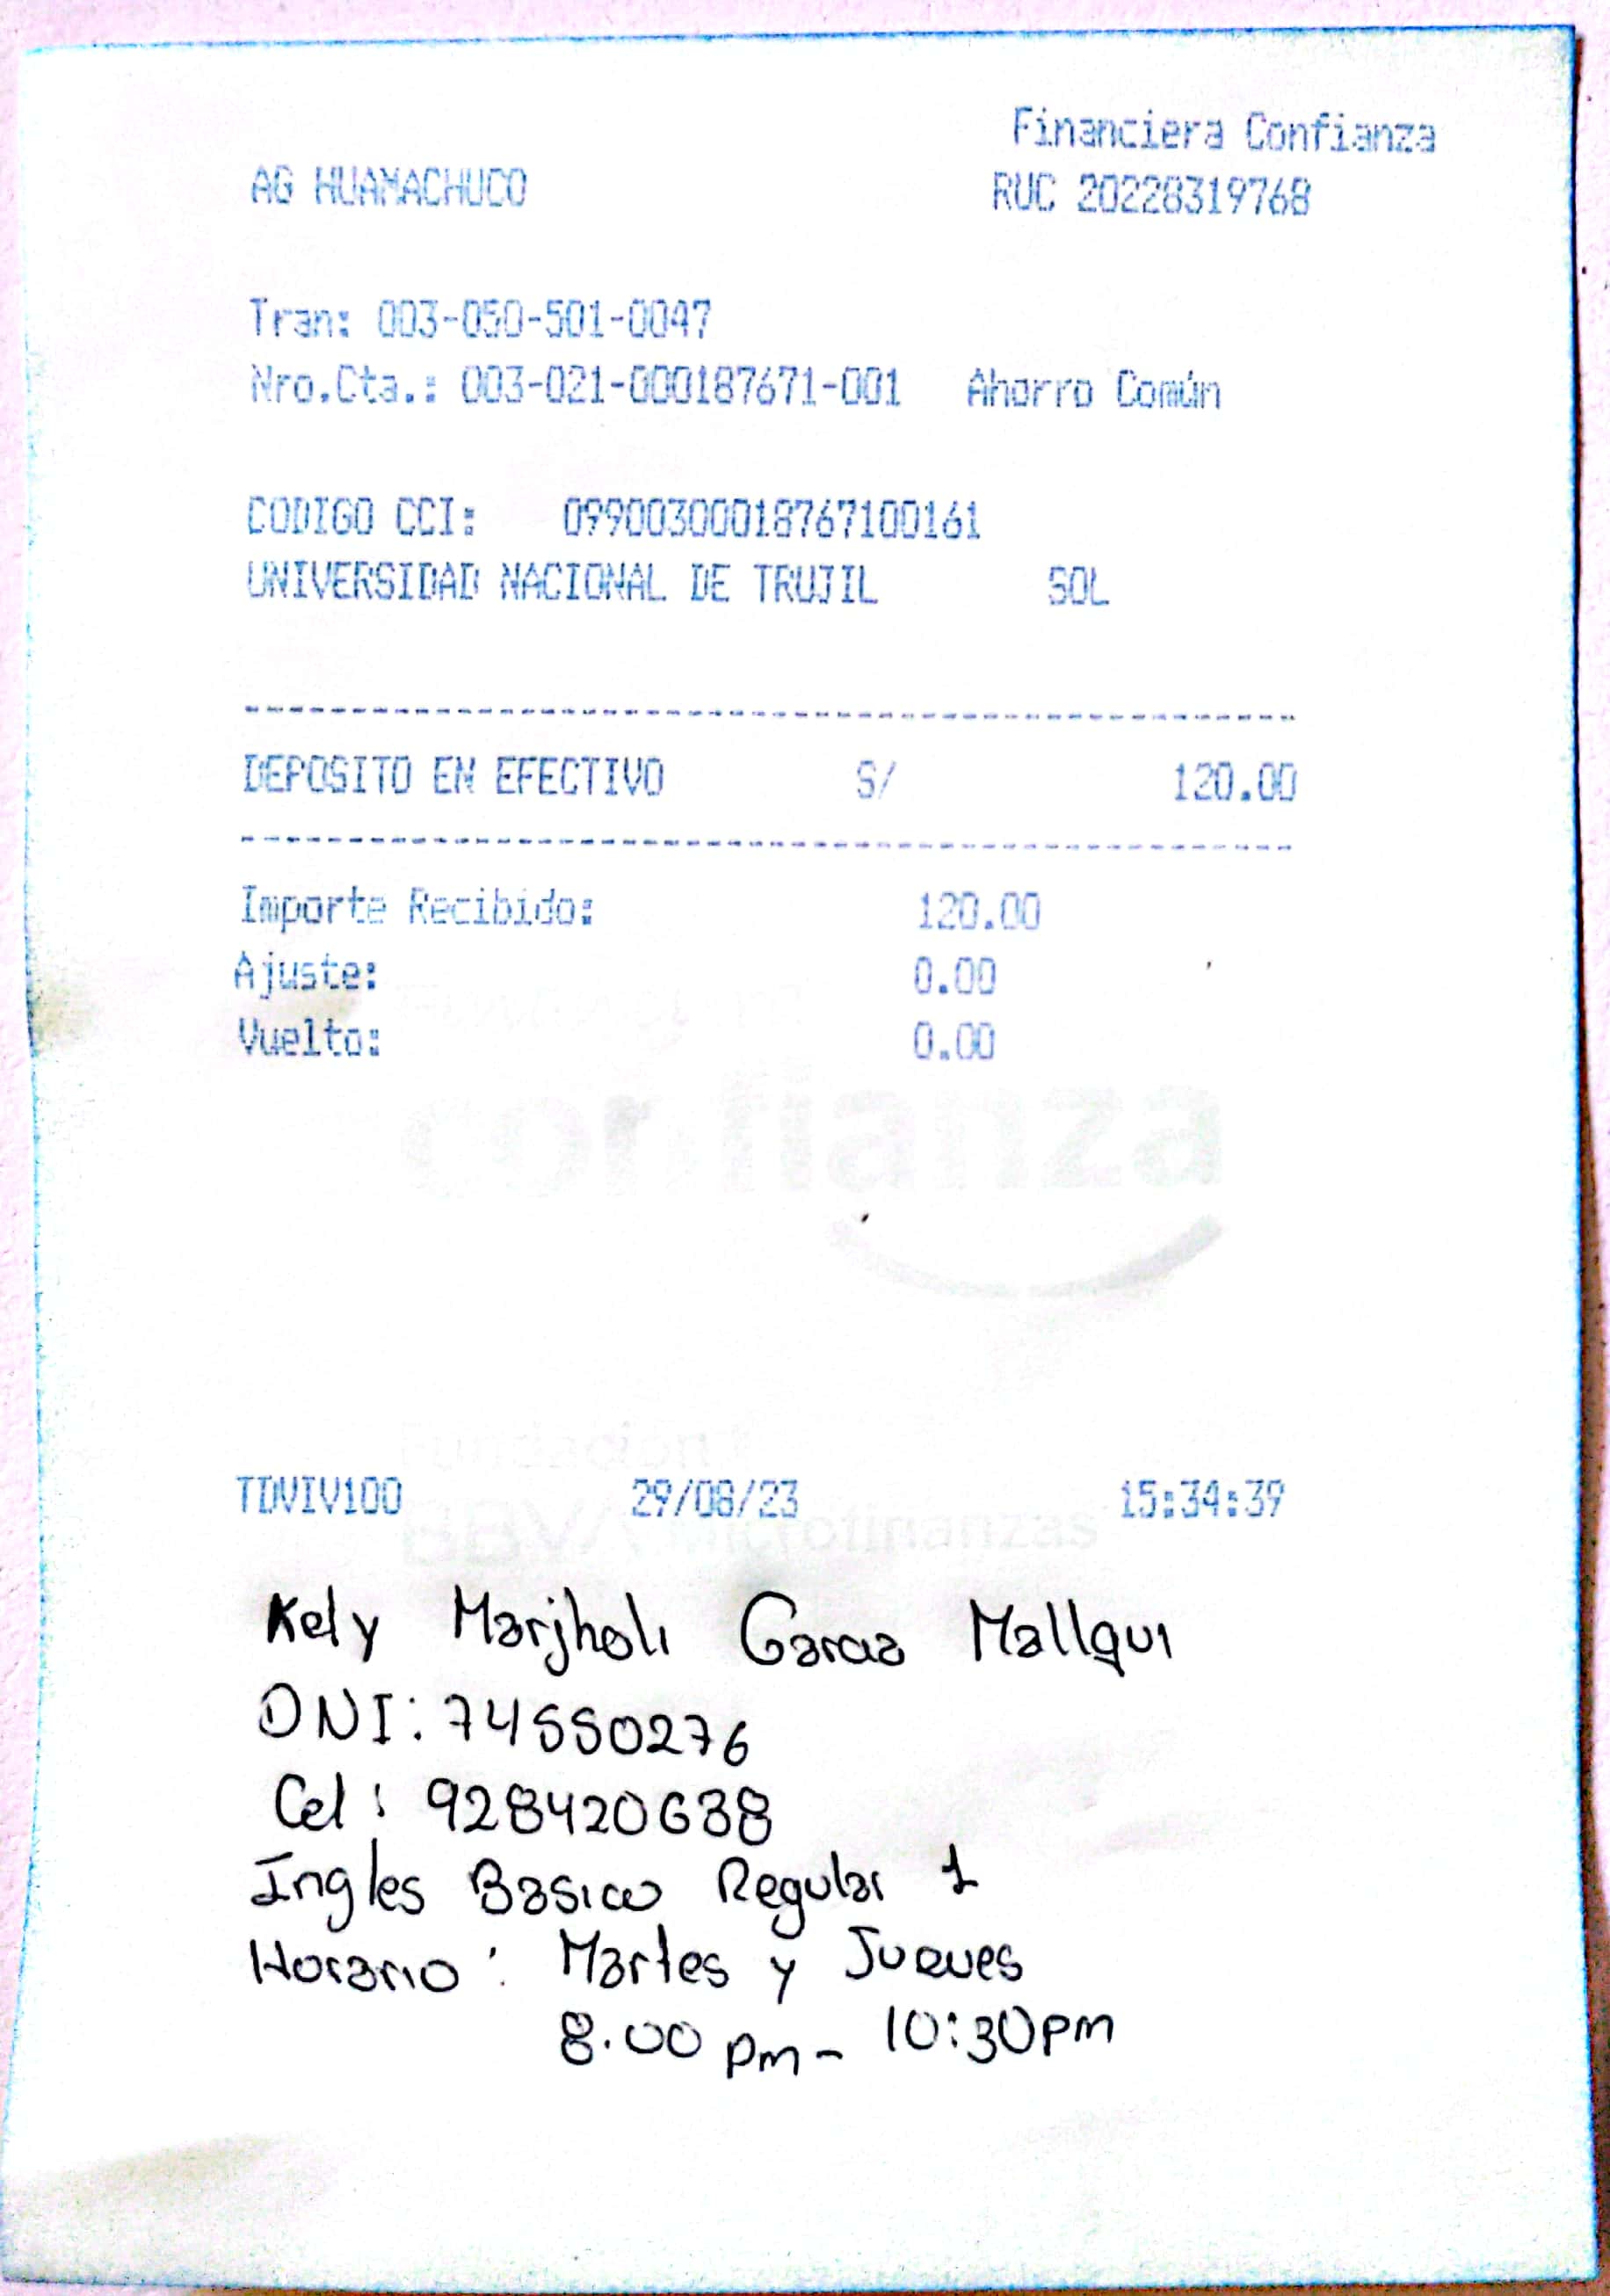 Financiera Confianza
AG HUAMACHUCO RUC 20228319768
Tran: 003-050-501-0047
Nro.Cta.: 003-021-000187671-001 Ahorro Común
CODIGO CCI: 09900300018767100161
UNIVERSIDAD NACIONAL DE TRUJIL SOL
DEPOSITO EN EFECTIVO S/ 120.00
Importe Recibido: 120.00
Ajuste: 0.00
Vuelto: 0.00
confianza
Fundación
TDVIV100 29/08/23 15:34:39
BBVA Microfinanzas
Kely Marjholi Garcia Mallqui
DNI: 74550276
Cel: 928420638
Ingles Basico Regular 1
Horario: Martes y Jueves
8.00 pm - 10:30pm